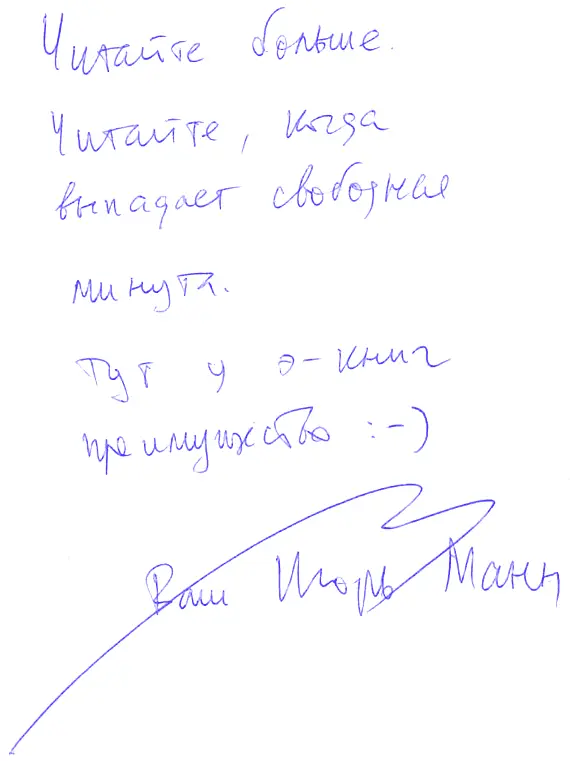 Читайте больше.
Читайте, когда
выпадает свободная
минута.
Тут у э-книг
преимущество :-)
Ваш Игорь Манн